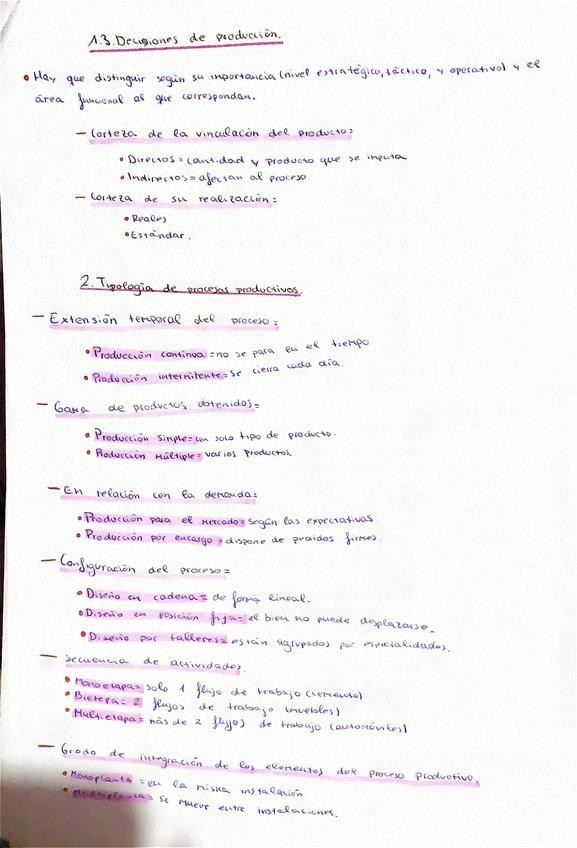 1.3. Decisiones de producción.
• Hay que distinguir según su importancia (nivel estratégico, táctico, y operativo) y el
área funcional al que correspondan.
— Corteza de la vinculación del producto:
• Directos = cantidad y producto que se imputa
• Indirectos = afectan al proceso
— Corteza de su realización:
• Reales
• Estándar.
2. Tipología de procesos productivos.
— Extensión temporal del proceso:
• Producción continua = no se para en el tiempo
• Producción intermitente = se cierra cada día.
— Gama de productos obtenidos =
• Producción simple = un solo tipo de producto.
• Producción múltiple = varios productos.
— En relación con la demanda =
• Producción para el mercado = según las expectativas
• Producción por encargo = dispone de pedidos firmes.
— Configuración del proceso =
• Diseño en cadena = de forma lineal.
• Diseño en posición fija = el bien no puede desplazarse.
• Diseño por talleres = están agrupados por especialidades.
— Secuencia de actividades
• Monoetapa = solo 1 flujo de trabajo (cemento)
• Bietapa = 2 flujos de trabajo (muebles)
• Multietapa = más de 2 flujos de trabajo (automóviles)
— Grado de integración de los elementos del proceso productivo.
• Monoplanta = en la misma instalación
• Multiplanta = se mueve entre instalaciones.